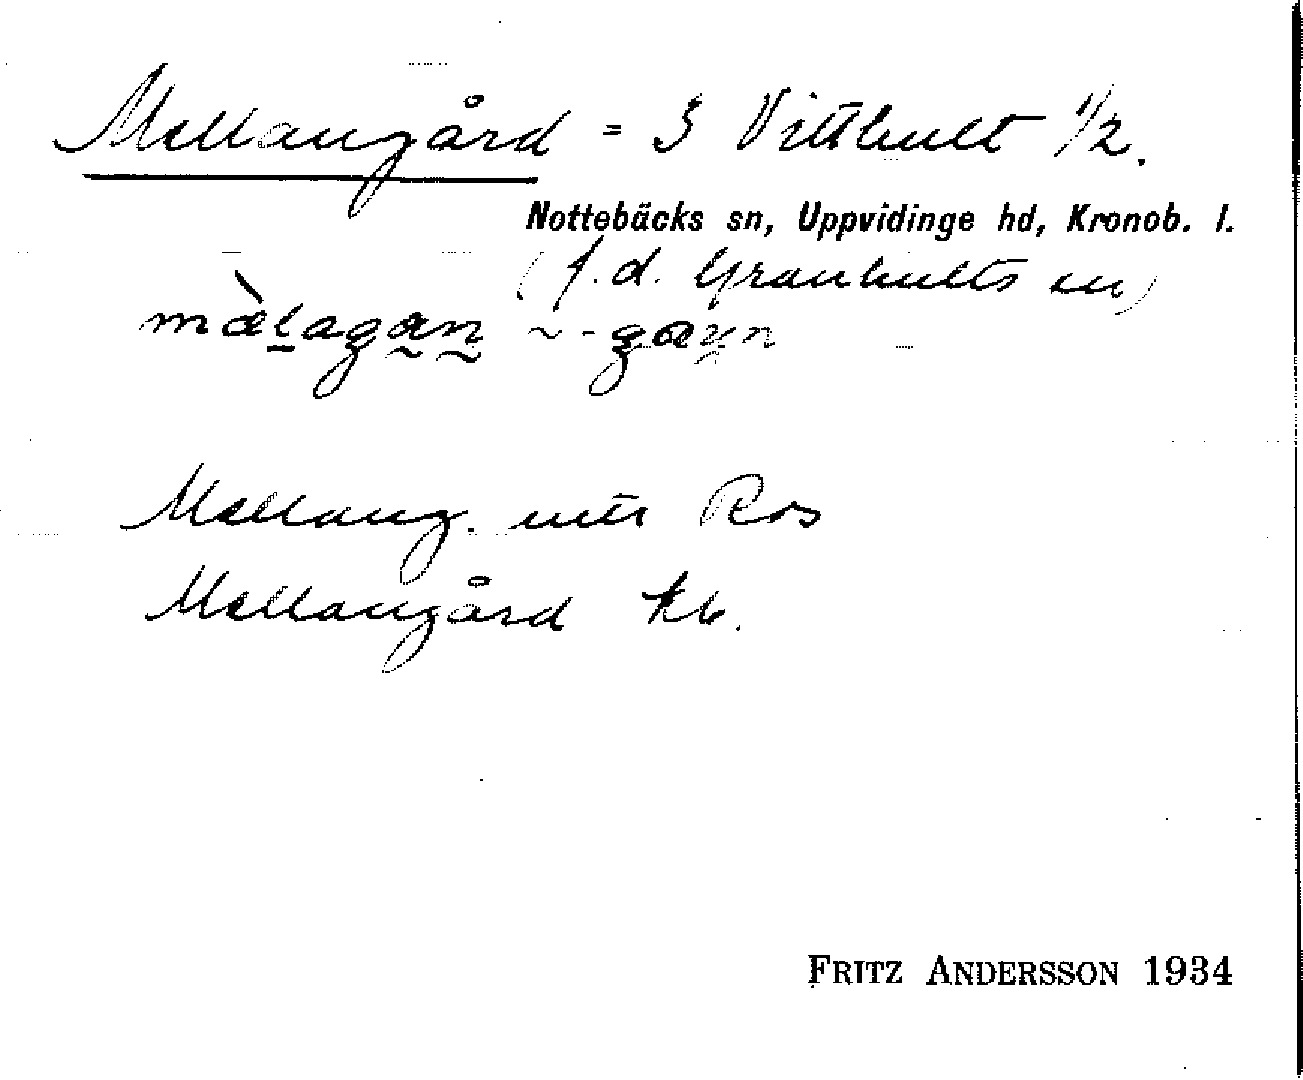 Mellangård = S Vithult 1/2.
Nottebäcks sn, Uppvidinge hd, Kronob. l.
(f.d. Granhults sn)
mæ̀lagan ~ -gaɯn
Mellang. utr Ros
Mellangård kb.
FRITZ ANDERSSON 1934